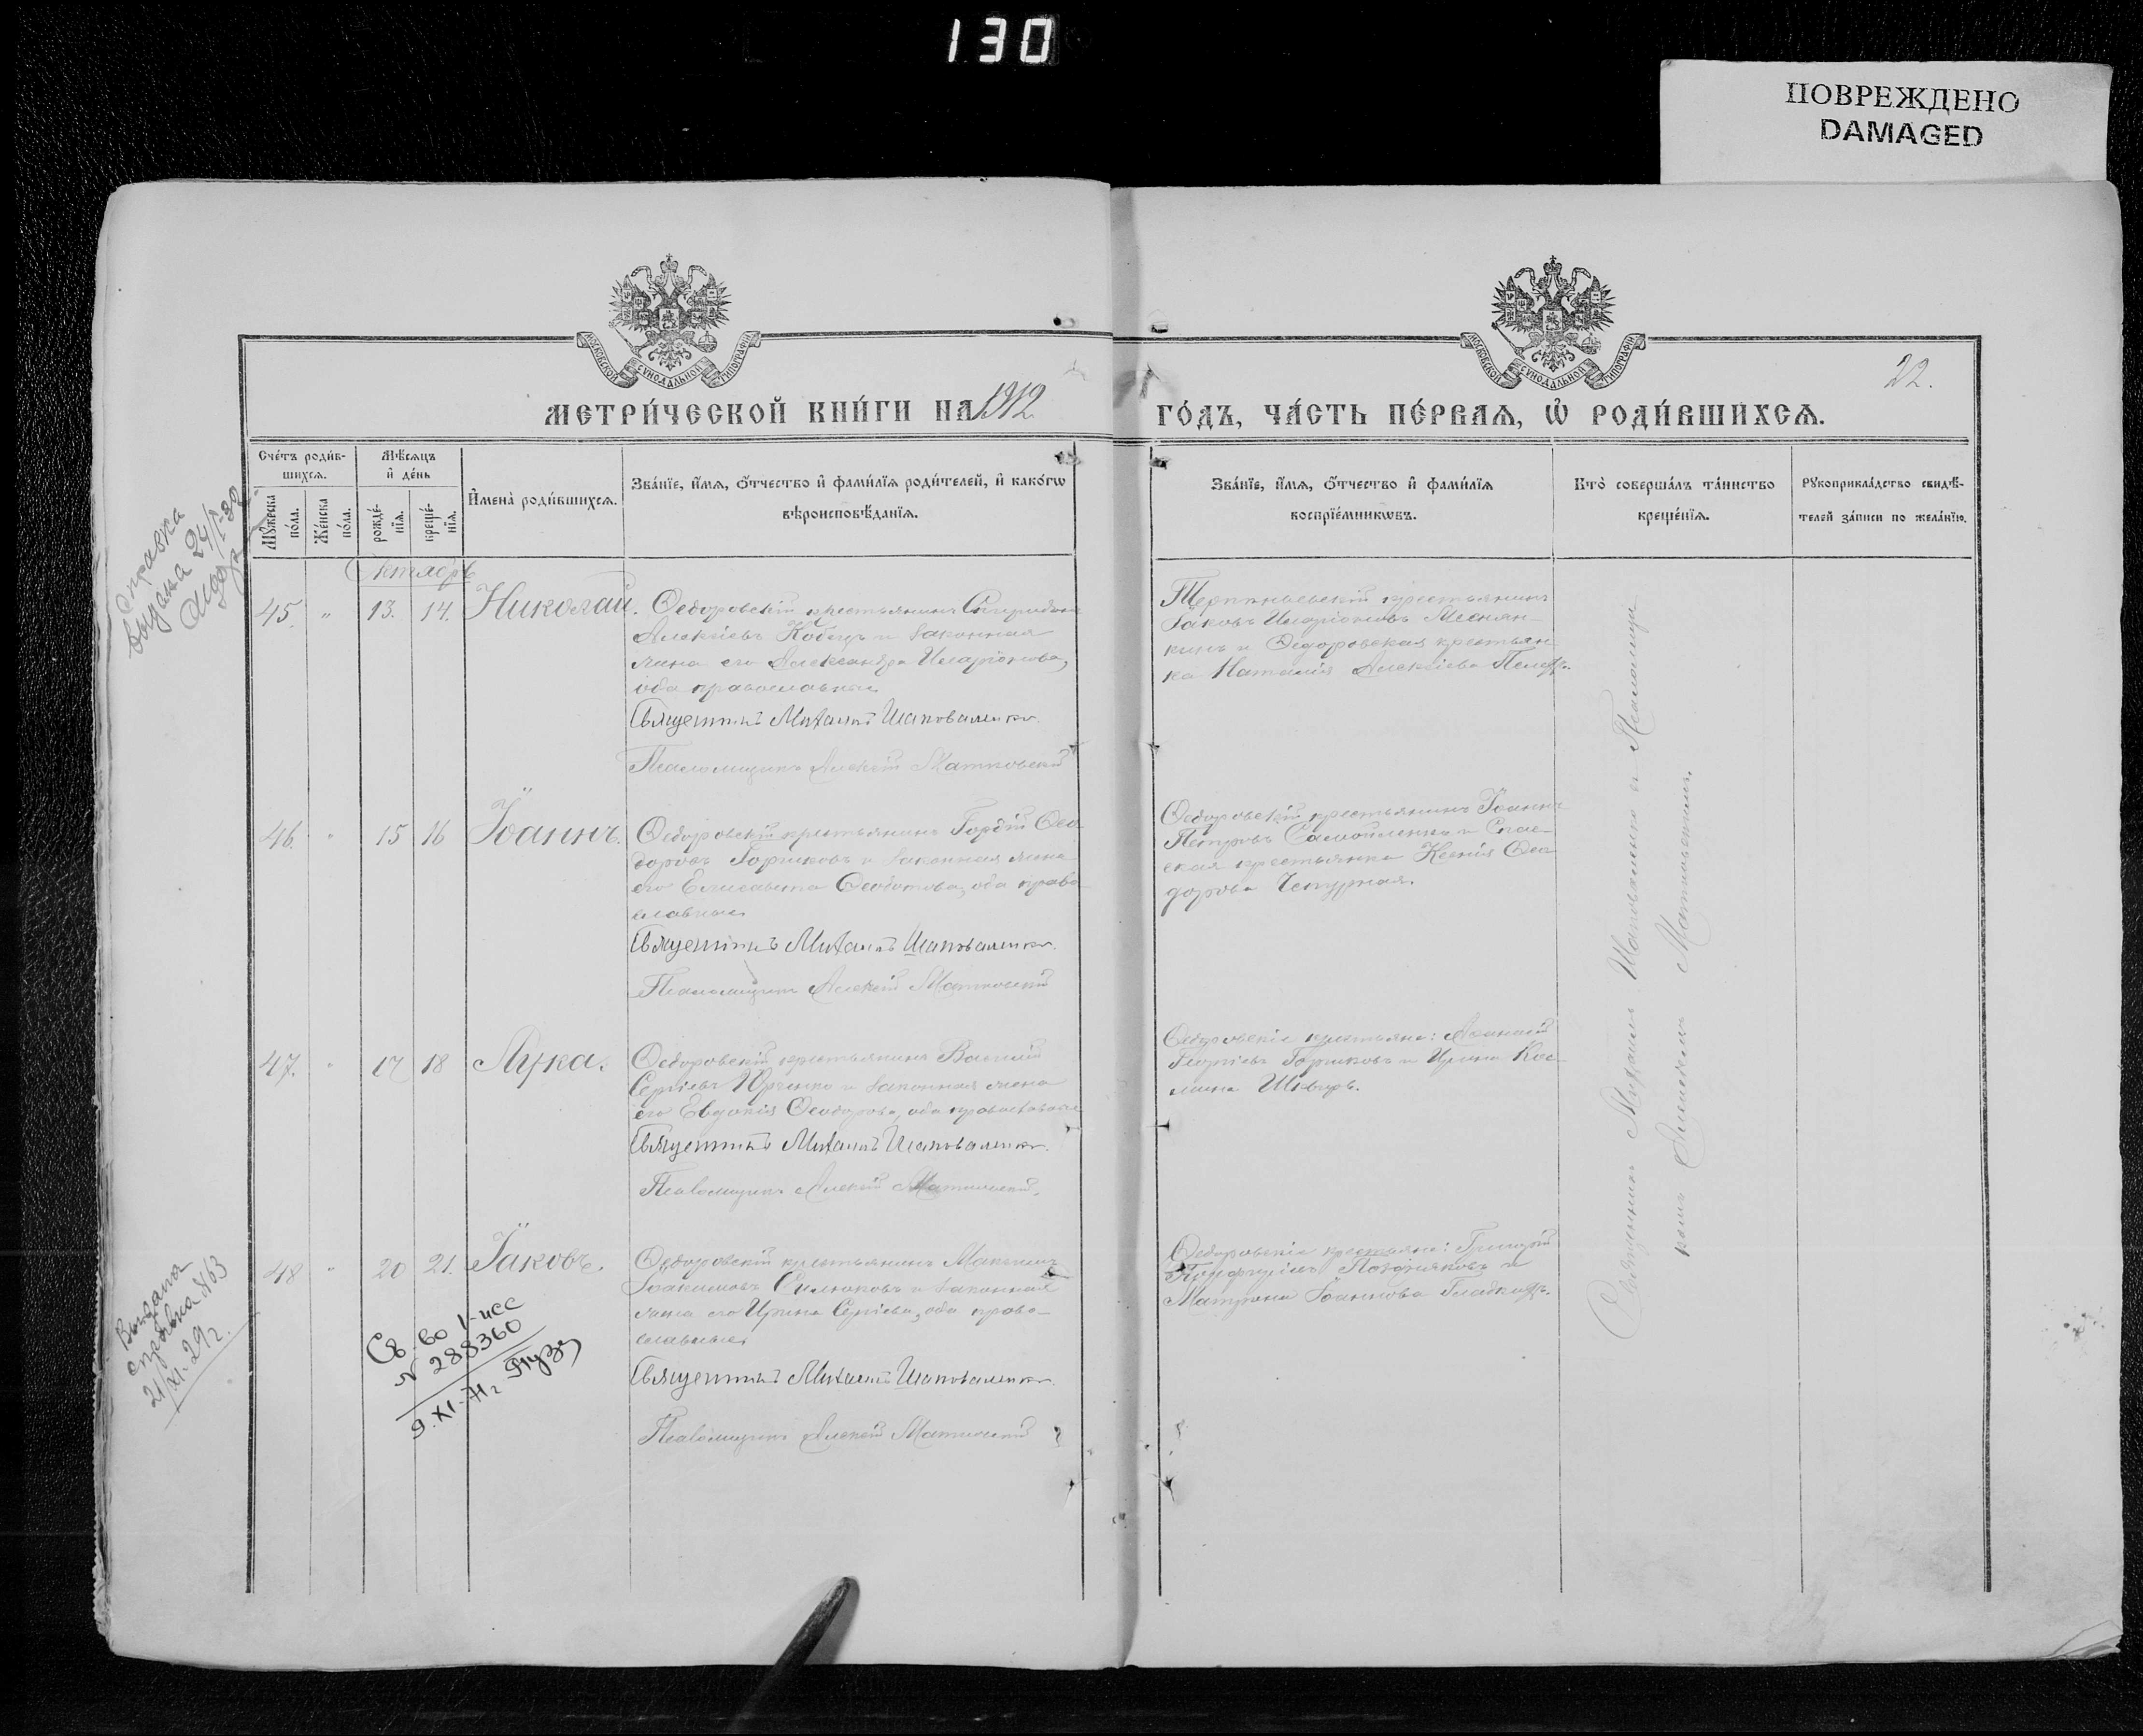 130
ПОВРЕЖДЕНО
DAMAGED
МОСКОВСКОЙ СѴНОДАЛЬНОЙ ТИПОГРАФІИ
МОСКОВСКОЙ СѴНОДАЛЬНОЙ ТИПОГРАФІИ
22.
МЕТРИ́ЧЕСКОЙ КНИ́ГИ НА 1912
ГО́ДЪ, ЧА́СТЬ ПЕ́РВАѦ, Ѽ РОДИ́ВШИХСѦ.
Сче́тъ роди́в-
шихсѧ.
Мꙋ́жеска по́ла.
Же́нска по́ла.
Мѣ́сѧцъ
и҆ де́нь
рожде́-
нїѧ.
креще́-
нїѧ.
И҆мена̀ роди́вшихсѧ.
Зва́нїе, и҆́мѧ, ѻ҆́тчество и҆ фами́лїѧ роди́телей, и҆ како́гѡ
вѣроисповѣ́данїѧ.
Зва́нїе, и҆́мѧ, ѻ҆́тчество и҆ фами́лїѧ
воспрїе́мникѡвъ.
Кто̀ соверша́лъ та́инство
креще́нїѧ.
Рꙋкоприкла́дство свидѣ́-
телей за́писи по жела́нїю.
Справка
выдана 24/
Октябрь
45. " 13. 14. Николай.
Ѳедоровскій крестьянинъ Спиридонъ
Алексіевъ Кобецъ и законная
жена его Александра Иларіонова,
оба православные
Священникъ Михаилъ Шаповаленко.
Псаломщикъ Алексій Матковскій
крестьянинъ
Іаковъ Иларіоновъ
и Ѳедоровская крестьян-
ка Наталія Алексіева
46. " 15 16 Іоаннъ.
Ѳедоровскій крестьянинъ Гордій Ѳео-
доровъ Горшковъ и законная жена
его Елисавета Ѳеодотова, оба право-
славные
Священникъ Михаилъ Шаповаленко.
Псаломщикъ Алексій Матковскій
Ѳедоровскій крестьянинъ Іоаннъ
Петровъ Самойленко и Спас-
ская крестьянка Ксенія Ѳео-
дорова Чепурная.
47. " 17 18 Лука.
Ѳедоровскій крестьянинъ Василій
Сергіевъ Юрченко и законная жена
его Евдокія Ѳеодорова, оба православные
Священникъ Михаилъ Шаповаленко.
Псаломщикъ Алексій Матковскій.
Ѳедоровскіе крестьяне: Аѳанасій
Георгіевъ Горшковъ и Ирина Кос-
мина Шкварь.
48 " 20 21. Іаковъ.
Ѳедоровскій крестьянинъ Максимъ
Іоакимовъ Силюковъ и законная
жена его Ирина Сергіева, оба право-
славные
Священникъ Михаилъ Шаповаленко.
Псаломщикъ Алексій Матковскій
Ѳедоровскіе крестьяне: Григорій
Порфиріевъ Поздняковъ и
Матрона Іоаннова
Священникъ Михаилъ Шаповаленко и Псаломщи-
комъ Алексіемъ Матковскимъ.
Выдана
справка №63
21/XI-29г.
Св-во
№ 288360
9.XI-